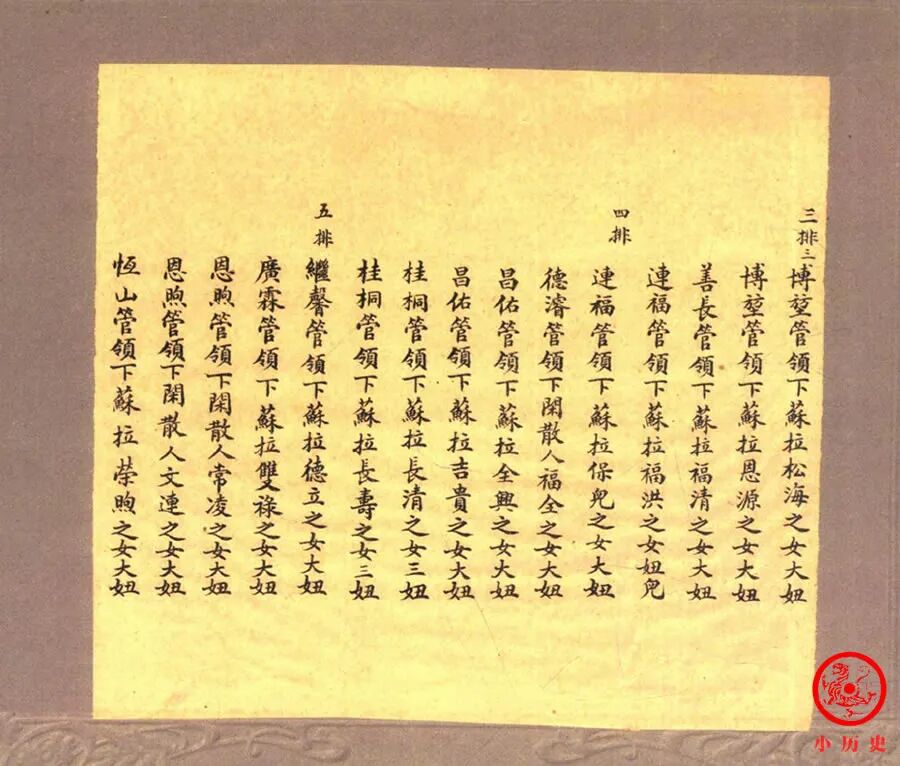 三排三
博堃管領下蘇拉松海之女大妞
博堃管領下蘇拉恩源之女大妞
善長管領下蘇拉福清之女大妞
連福管領下蘇拉福洪之女妞兒
四排
連福管領下蘇拉保兒之女大妞
德濬管領下閑散人福全之女大妞
昌佑管領下蘇拉全興之女大妞
昌佑管領下蘇拉吉貴之女大妞
桂桐管領下蘇拉長清之女三妞
桂桐管領下蘇拉長壽之女三妞
五排
繼馨管領下蘇拉德立之女大妞
廣霖管領下蘇拉雙祿之女大妞
恩煦管領下閑散人常凌之女大妞
恩煦管領下閑散人文連之女大妞
恆山管領下蘇拉榮煦之女大妞
小历史